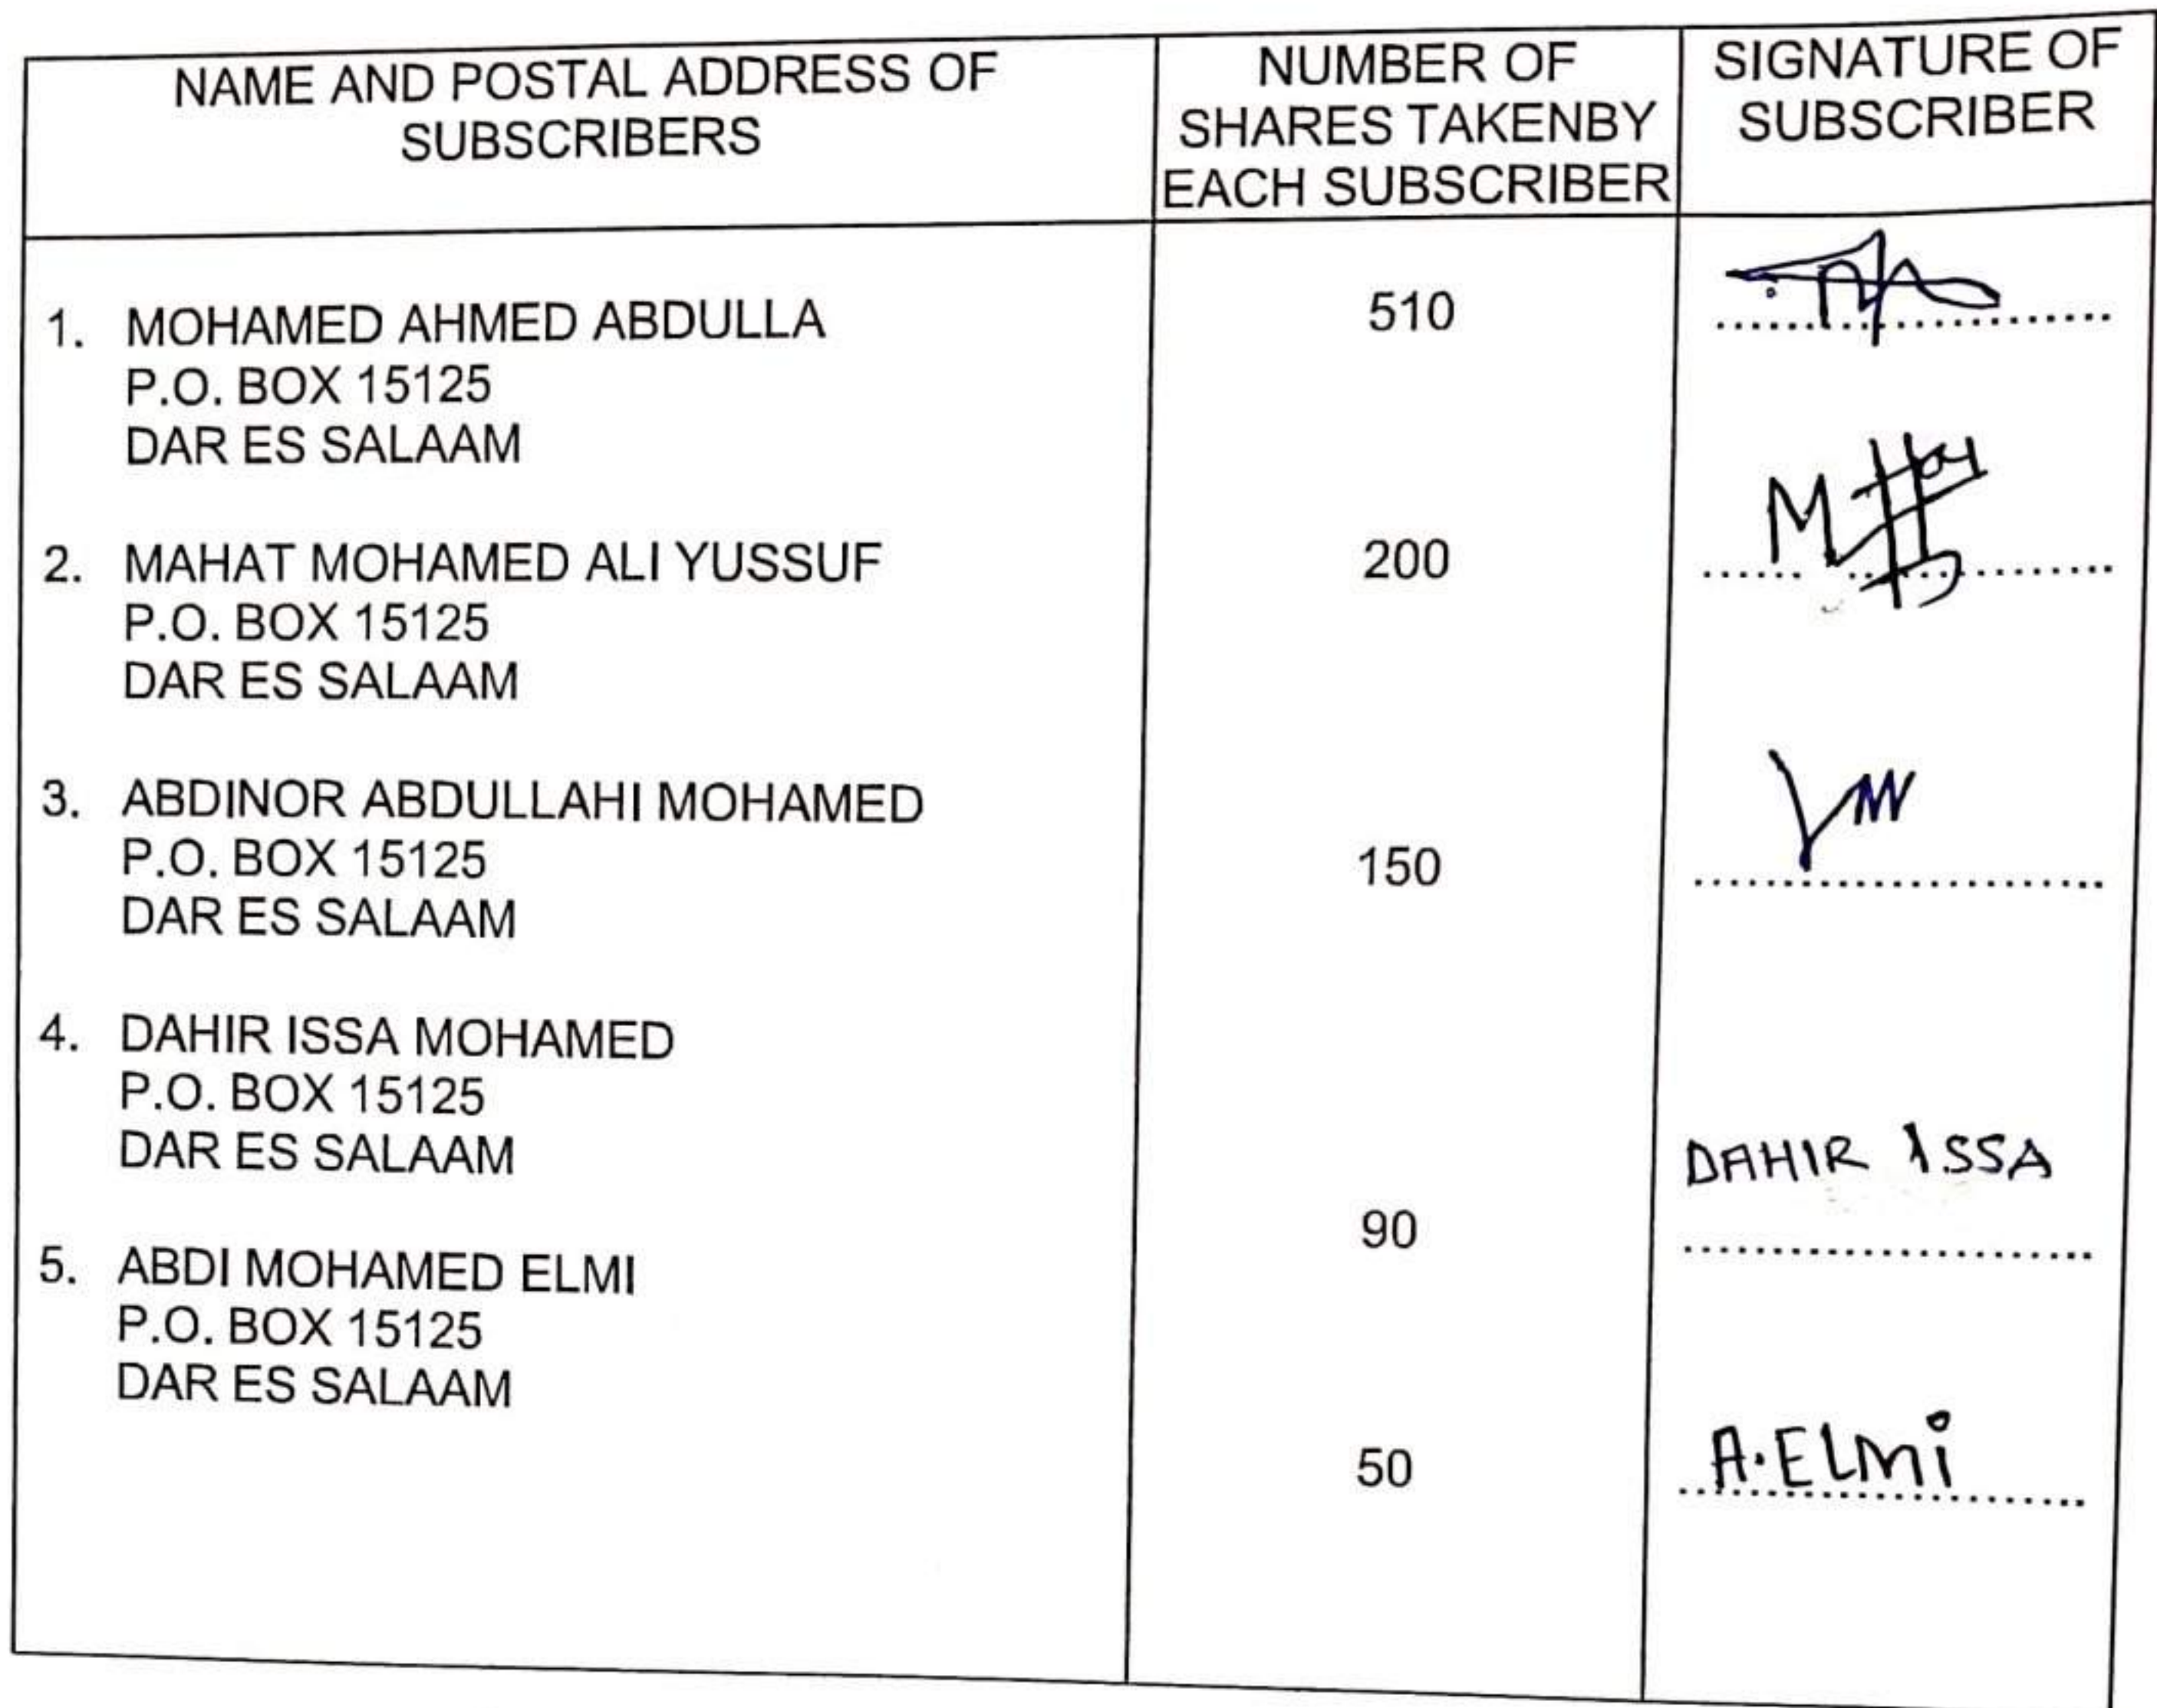 NAME AND POSTAL ADDRESS OF
SUBSCRIBERS
NUMBER OF
SHARES TAKENBY
EACH SUBSCRIBER
SIGNATURE OF
SUBSCRIBER
1. MOHAMED AHMED ABDULLA
P.O. BOX 15125
DAR ES SALAAM
510
2. MAHAT MOHAMED ALI YUSSUF
P.O. BOX 15125
DAR ES SALAAM
200
3. ABDINOR ABDULLAHI MOHAMED
P.O. BOX 15125
DAR ES SALAAM
150
4. DAHIR ISSA MOHAMED
P.O. BOX 15125
DAR ES SALAAM
90
DAHIR ISSA
5. ABDI MOHAMED ELMI
P.O. BOX 15125
DAR ES SALAAM
50
A.ELMi